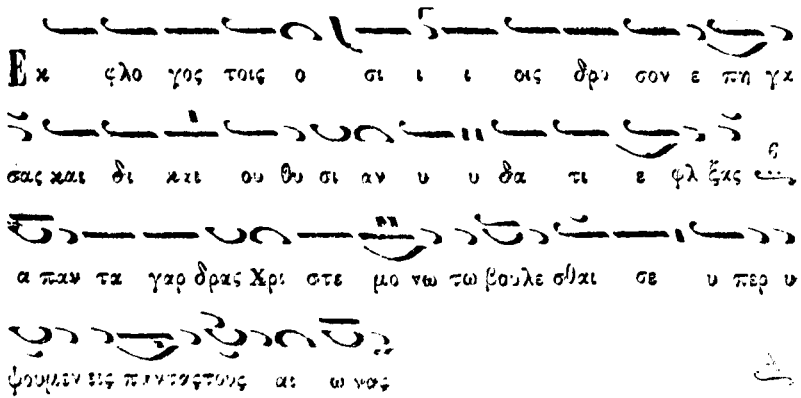 Εκ φλο γος τοις ο σι ι ι οις δρο σον ε πη γα
σας και δι και ου θυ σι αν υ υ δα τι ε φλ ξας
α παν τα γαρ δρας Χρι στε μο νω τω βουλε σθαι σε υ περ υ
ψουμεν εις παντας τους αι ω νας